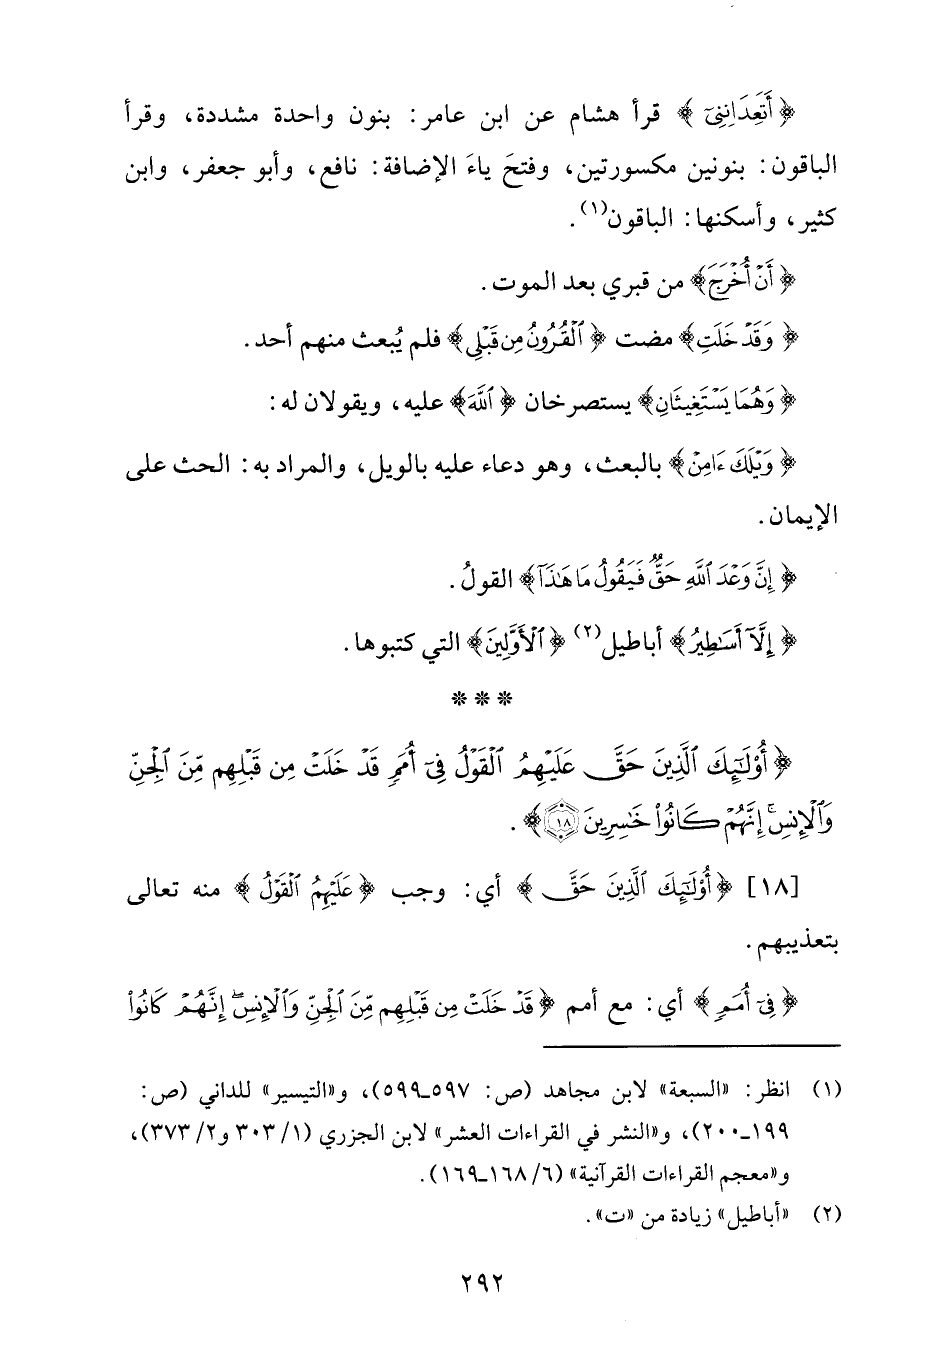 ﴿أَتَعِدَانِنِيٓ﴾ قرأ هشام عن ابن عامر: بنون واحدة مشددة، وقرأ
الباقون: بنونين مكسورتين، وفتحَ ياءَ الإضافة: نافع، وأبو جعفر، وابن
كثير، وأسكنها: الباقون(١).
﴿أَنْ أُخْرَجَ﴾ من قبري بعد الموت.
﴿وَقَدْ خَلَتِ﴾ مضت ﴿ٱلْقُرُونُ مِن قَبْلِي﴾ فلم يُبعث منهم أحد.
﴿وَهُمَا يَسْتَغِيثَانِ﴾ يستصرخان ﴿ٱللَّهَ﴾ عليه، ويقولان له:
﴿وَيْلَكَ ءَامِنْ﴾ بالبعث، وهو دعاء عليه بالويل، والمراد به: الحث على
الإيمان.
﴿إِنَّ وَعْدَ ٱللَّهِ حَقٌّ فَيَقُولُ مَا هَٰذَآ﴾ القولُ.
﴿إِلَّآ أَسَٰطِيرُ﴾ أباطيل(٢) ﴿ٱلْأَوَّلِينَ﴾ التي كتبوها.
***
﴿أُوْلَٰٓئِكَ ٱلَّذِينَ حَقَّ عَلَيْهِمُ ٱلْقَوْلُ فِيٓ أُمَمٍ قَدْ خَلَتْ مِن قَبْلِهِم مِّنَ ٱلْجِنِّ
وَٱلْإِنسِۖ إِنَّهُمْ كَانُوا۟ خَٰسِرِينَ ١٨﴾.
[١٨] ﴿أُوْلَٰٓئِكَ ٱلَّذِينَ حَقَّ﴾ أي: وجب ﴿عَلَيْهِمُ ٱلْقَوْلُ﴾ منه تعالى
بتعذيبهم.
﴿فِيٓ أُمَمٍ﴾ أي: مع أمم ﴿قَدْ خَلَتْ مِن قَبْلِهِم مِّنَ ٱلْجِنِّ وَٱلْإِنسِۖ إِنَّهُمْ كَانُوا۟
(١) انظر: «السبعة» لابن مجاهد (ص: ٥٩٧ـ٥٩٩)، و«التيسير» للداني (ص:
١٩٩ـ٢٠٠)، و«النشر في القراءات العشر» لابن الجزري (١/ ٣٠٣ و٢/ ٣٧٣)،
و«معجم القراءات القرآنية» (٦/ ١٦٨ـ١٦٩).
(٢) «أباطيل» زيادة من «ت».
٢٩٢